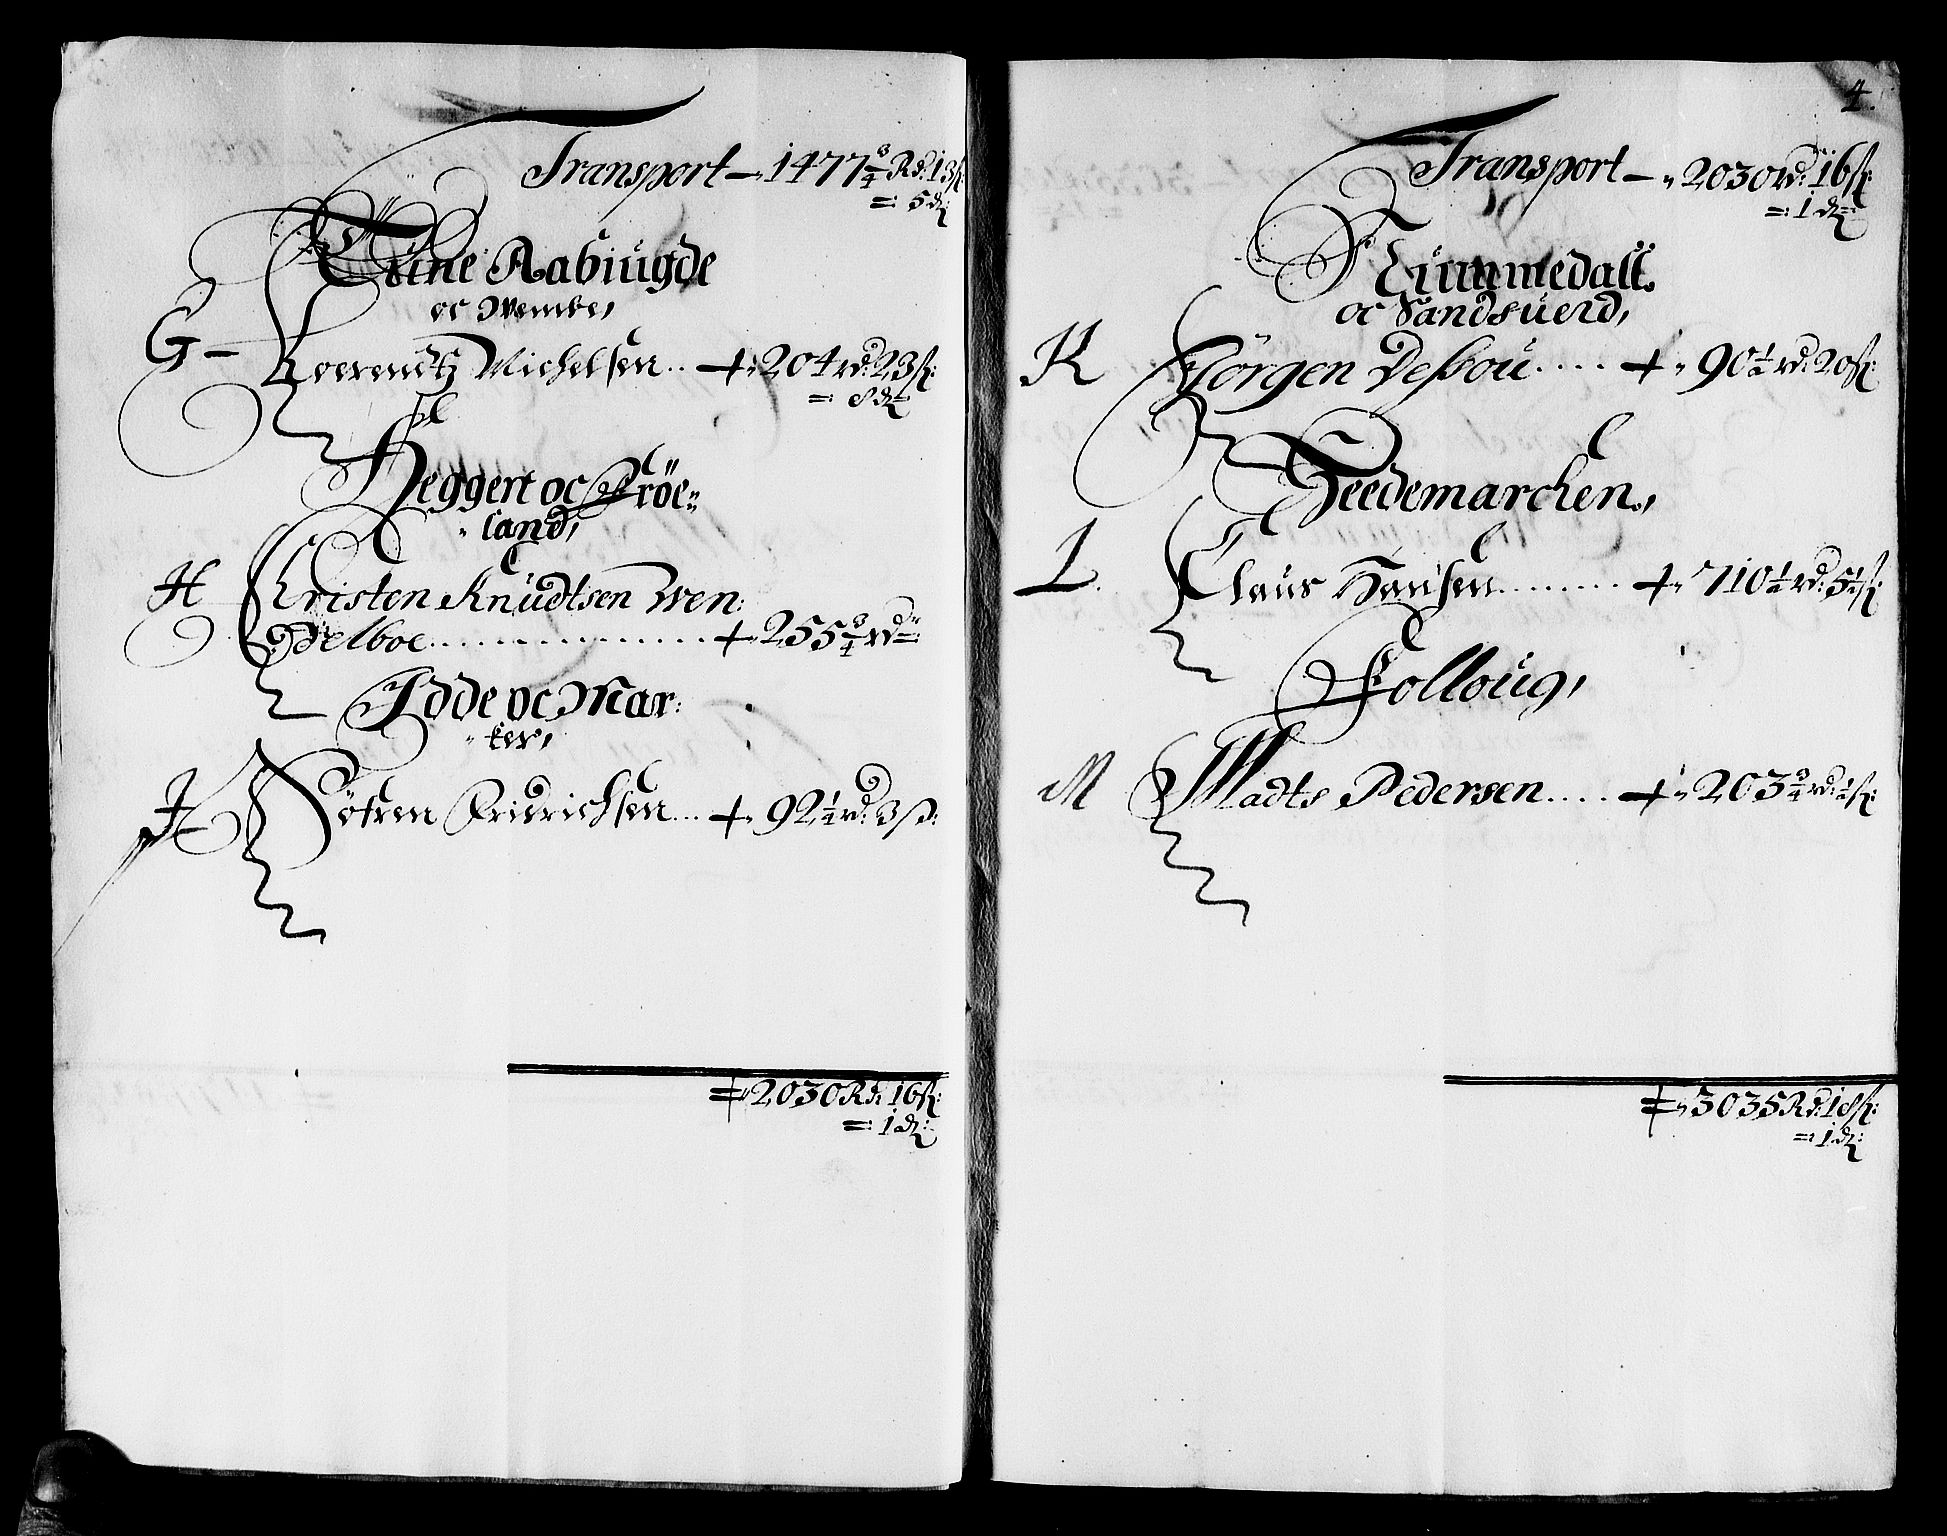 Transport — 1477 3/4 Rd: 13 ß:
=: 5 d:
Tüne Aabiügde
oc Wembe,
G — Loerendtz Michelsen .. + 204 rd: 23 ß:
=: 8 d:
Heggert oc Fröe„
„land,
H Kristen Knüdtsen Wen:
delboe ................ + 255 3/4 rd
Idde oc Mar:
„ker,
J Sören Fridrichsen ... + 92 1/4 rd: 3 ß:
2030 Rd: 16 ß:
=: 1 d:
4.
Transport — „ 2030 rd: 16 ß:
=: 1 d:
Nümmedall
oc Sandsüerd,
K Jörgen .... + „ 90 1/2 rd: 20 ß:
Heedemarcken,
L. Claus Hansen ........ + „ 710 1/4 rd: 5 1/2 ß:
Folloüg,
M Madts Pedersen .... + „ 203 3/4 rd:
3035 Rd: 18 ß:
=: 1 d: